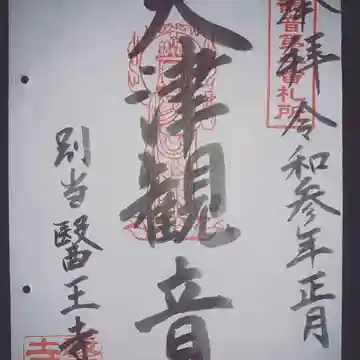 奉拝 令和参年正月
大津観音
別当醫王寺